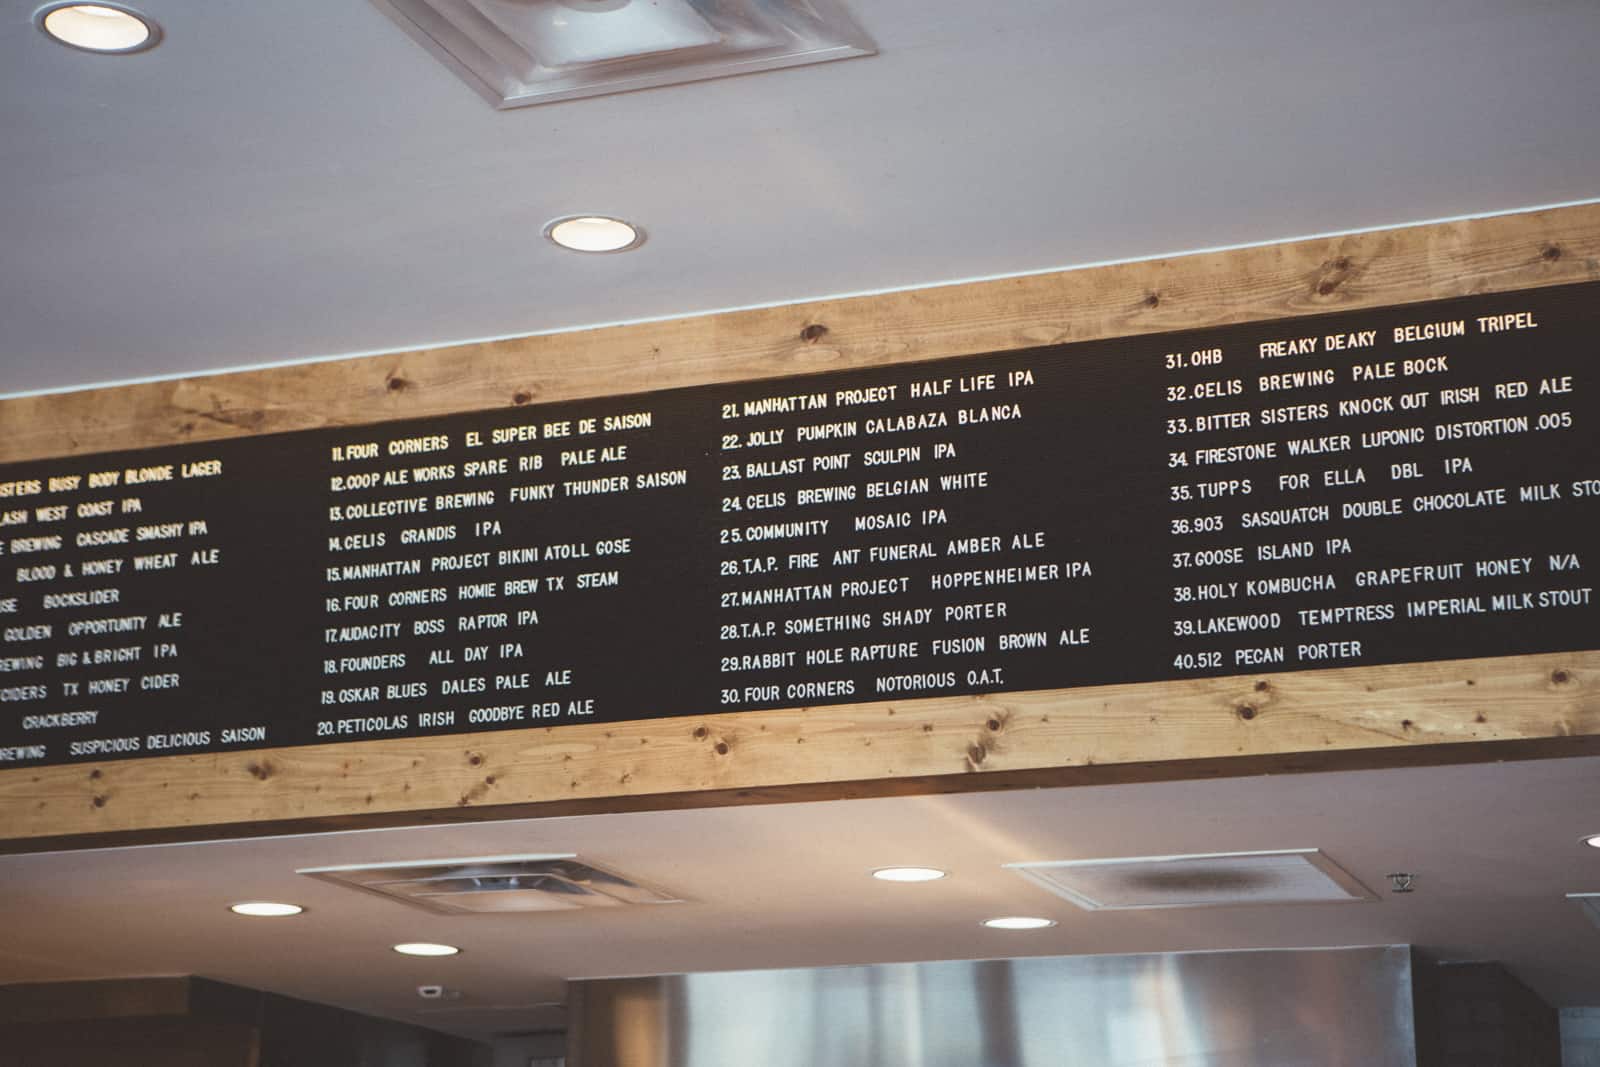 STERS BUSY BODY BLONDE LAGER
LASH WEST COAST IPA
E BREWING CASCADE SMASHY IPA
BLOOD & HONEY WHEAT ALE
USE BOCKSLIDER
GOLDEN OPPORTUNITY ALE
REWING BIG & BRIGHT IPA
CIDERS TX HONEY CIDER
CRACKBERRY
REWING SUSPICIOUS DELICIOUS SAISON
11. FOUR CORNERS EL SUPER BEE DE SAISON
12. COOP ALE WORKS SPARE RIB PALE ALE
13. COLLECTIVE BREWING FUNKY THUNDER SAISON
14. CELIS GRANDIS IPA
15. MANHATTAN PROJECT BIKINI ATOLL GOSE
16. FOUR CORNERS HOMIE BREW TX STEAM
17. AUDACITY BOSS RAPTOR IPA
18. FOUNDERS ALL DAY IPA
19. OSKAR BLUES DALES PALE ALE
20. PETICOLAS IRISH GOODBYE RED ALE
21. MANHATTAN PROJECT HALF LIFE IPA
22. JOLLY PUMPKIN CALABAZA BLANCA
23. BALLAST POINT SCULPIN IPA
24. CELIS BREWING BELGIAN WHITE
25. COMMUNITY MOSAIC IPA
26. T.A.P. FIRE ANT FUNERAL AMBER ALE
27. MANHATTAN PROJECT HOPPENHEIMER IPA
28. T.A.P. SOMETHING SHADY PORTER
29. RABBIT HOLE RAPTURE FUSION BROWN ALE
30. FOUR CORNERS NOTORIOUS O.A.T.
31. OHB FREAKY DEAKY BELGIUM TRIPEL
32. CELIS BREWING PALE BOCK
33. BITTER SISTERS KNOCK OUT IRISH RED ALE
34. FIRESTONE WALKER LUPONIC DISTORTION .005
35. TUPPS FOR ELLA DBL IPA
36. 903 SASQUATCH DOUBLE CHOCOLATE MILK STO
37. GOOSE ISLAND IPA
38. HOLY KOMBUCHA GRAPEFRUIT HONEY N/A
39. LAKEWOOD TEMPTRESS IMPERIAL MILK STOUT
40. 512 PECAN PORTER